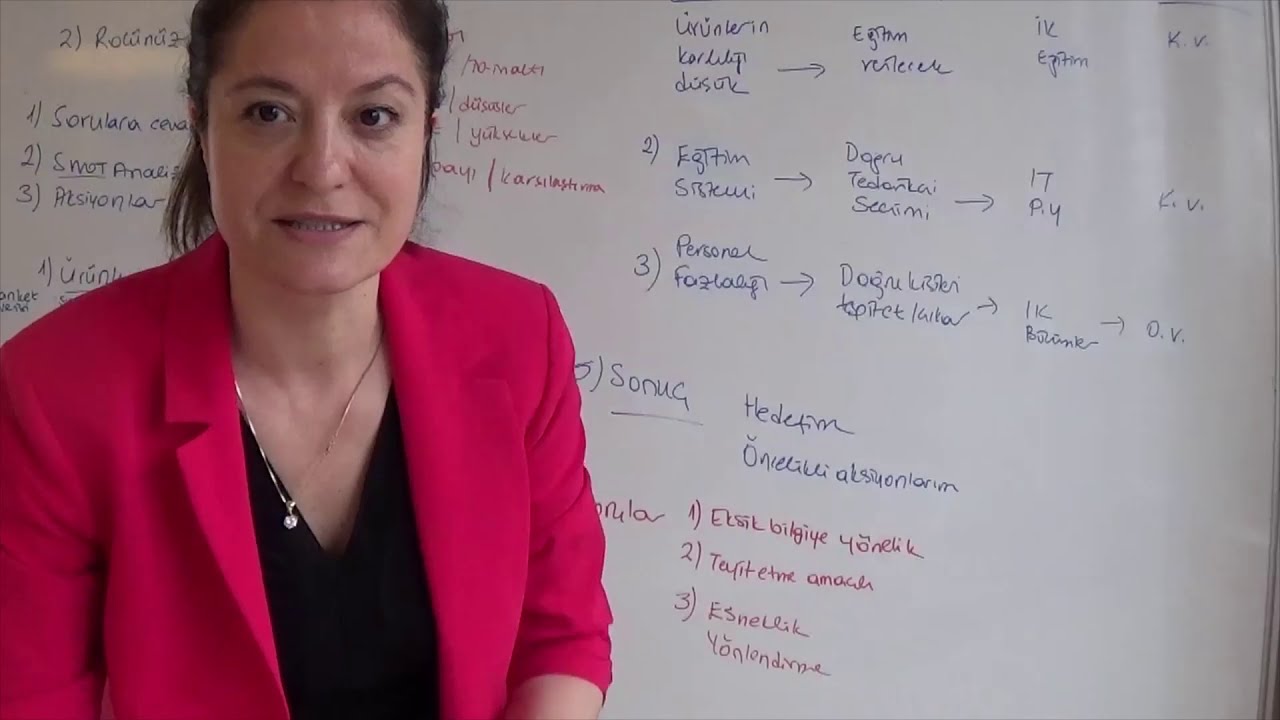 2) Rolünüz
1) Sorulara ceva
2) SWOT Analiz
3) Aksiyonlar
1) Ürünle
anket
verisi
/ normaltı
/ düşüşler
/ yüksekler
payı / karşılaştırma
Ürünlerin
karlılığı
düşük →
Eğitim
verilecek
İK
Eğitim
K.V.
2) Eğitim
Sistemi →
Doğru
Tedarikçi
Seçimi →
IT
P.Y
K.V.
3) Personel
Fazlalığı →
Doğru kişileri
tespit et / çıkar →
IK
Bölümler →
O.V.
5) Sonuç
Hedefim
Öncelikli aksiyonlarım
orular
1) Eksik bilgiye yönelik
2) Teyit etme amaçlı
3) Esneklik
Yönlendirme